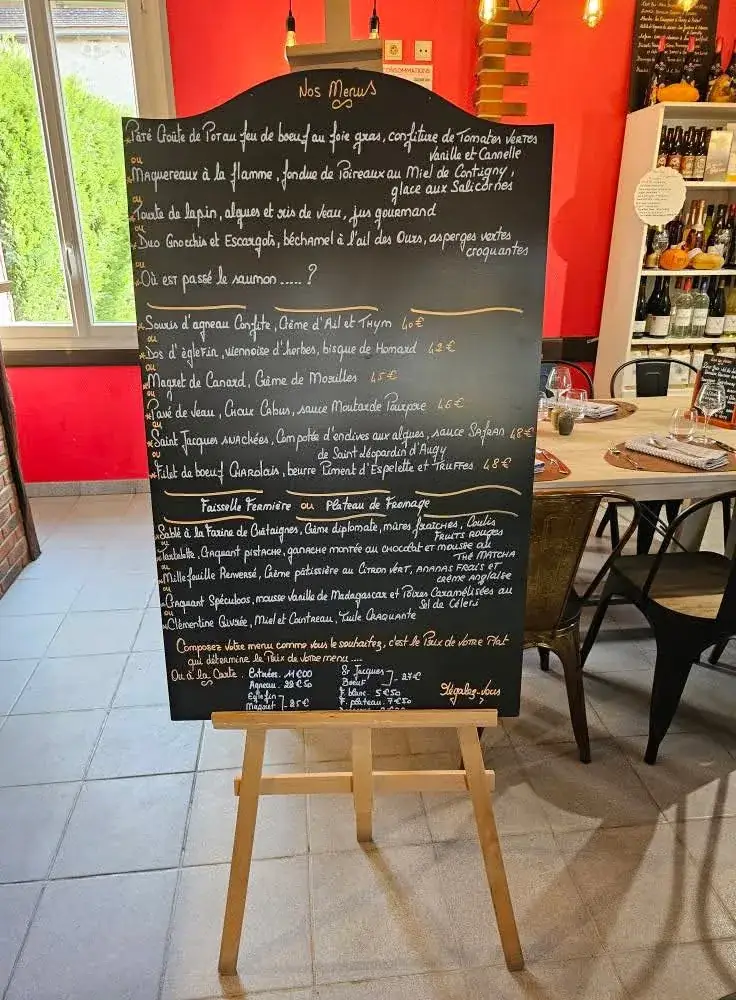 Nos Menus
Pâté Croûte de Pot au feu de boeuf au foie gras, confiture de Tomates vertes
Vanille et Cannelle
ou
Maquereaux à la flamme, fondue de Poireaux au Miel de Contigny,
glace aux Salicornes
ou
Tourte de lapin, algues et ris de veau, jus gourmand
ou
Duo Gnocchis et Escargots, béchamel à l'ail des Ours, asperges vertes
croquantes
ou
Où est passé le saumon ..... ?
Souris d'agneau Confite, Crème d'Ail et Thym 40€
ou
Dos d'églefin, viennoise d'herbes, bisque de Homard 42€
ou
Magret de Canard, Crème de Morilles 45€
ou
Pavé de veau, Choux Cabus, sauce Moutarde Pourpre 46€
ou
Saint Jacques snackées, Compotée d'endives aux algues, sauce Safran 48€
de Saint Léopardin d'Augy
ou
Filet de boeuf Charolais, beurre Piment d'Espelette et Truffes 48€
Faisselle Fermière ou Plateau de Fromage
Sablé à la Farine de Chataignes, Crème diplomate, mûres fraîches, Coulis
Fruits rouges
ou
Tartelette, Craquant pistache, ganache montée au chocolat et mousse au
Thé Matcha
ou
Millefeuille Renversé, Crème pâtissière au Citron vert, ananas frais et
crème anglaise
ou
Craquant Spéculoos, mousse vanille de Madagascar et Poires Caramélisées au
Sel de Céleri
ou
Clémentine Givrée, Miel et Cointreau, Tuile Craquante
Composez votre menu comme vous le souhaitez, c'est le Prix de votre Plat
qui détermine le Prix de votre menu ....
Ou à la Carte. Entrées. 11€00
Agneau. 22€50
Eglefin
Magret ]. 25€
St Jacques
Boeuf ]. 27€
F. blanc. 5€50
F. plateau. 7€50
Régalez-vous